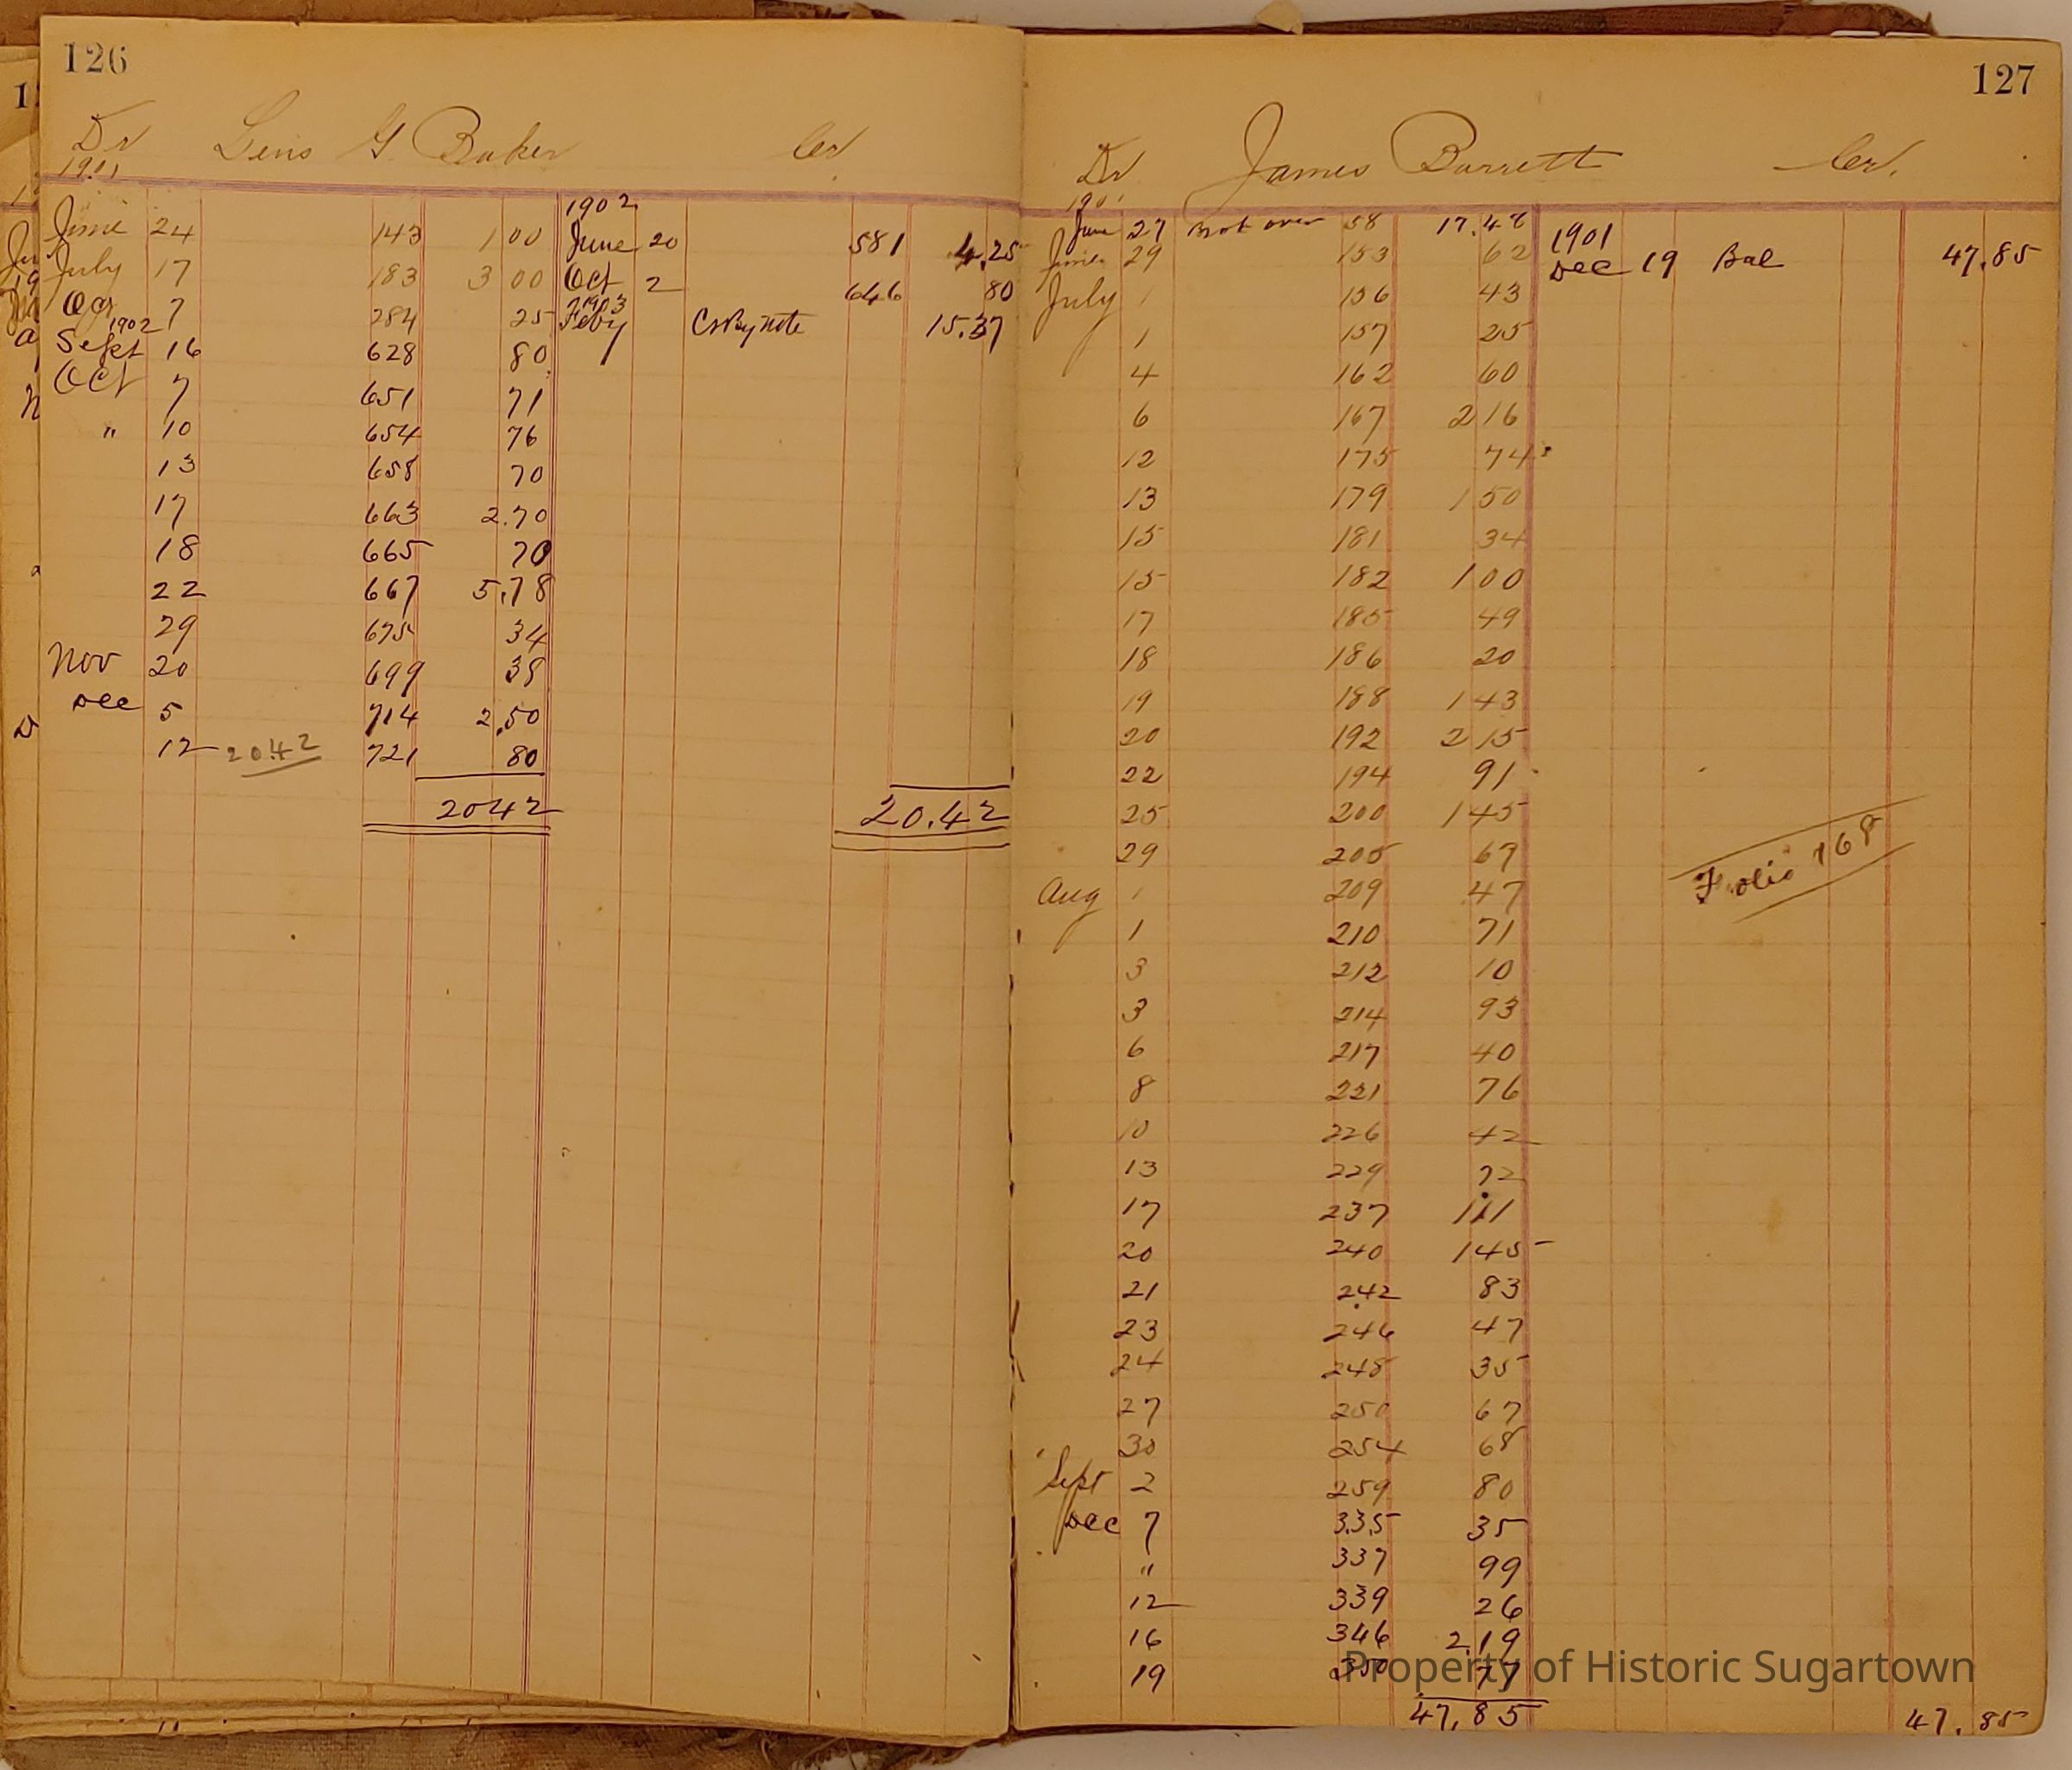 126
Dr Lewis G Baker Cr
1901
1902
June 24 143 1 00 June 20 581 4.25
July 17 183 3 00 Oct 2 646 80
Oct 7 284 25 1903 Feby Cr By note 15.37
1902
Sept 16 628 80
Oct 7 651 71
" 10 654 76
13 658 70
17 663 2.70
18 665 70
22 667 5.78
29 675 34
Nov 20 699 38
Dec 5 714 2.50
12 20.42 721 80
2042 20.42
127
Dr James Barrett Cr.
1901
June 27 Brot over 58 17.48 1901
June 29 153 62 Dec 19 Bal 47.85
July 1 156 43
1 157 25
4 162 60
6 167 2 16
12 175 74
13 179 1 50
15 181 34
15 182 1 00
17 185 49
18 186 20
19 188 1 43
20 192 2 15
22 194 91
25 200 1 45
29 205 67
Folio 168
Aug 1 209 47
1 210 71
3 212 10
3 214 93
6 217 40
8 221 76
10 226 42
13 229 72
17 237 1 11
20 240 1 45
21 242 83
23 246 47
24 248 35
27 250 67
30 254 68
Sept 2 259 80
Dec 7 335 35
" 337 99
12 339 26
16 346 2.19
19 350 77
47.85 47.85
Property of Historic Sugartown